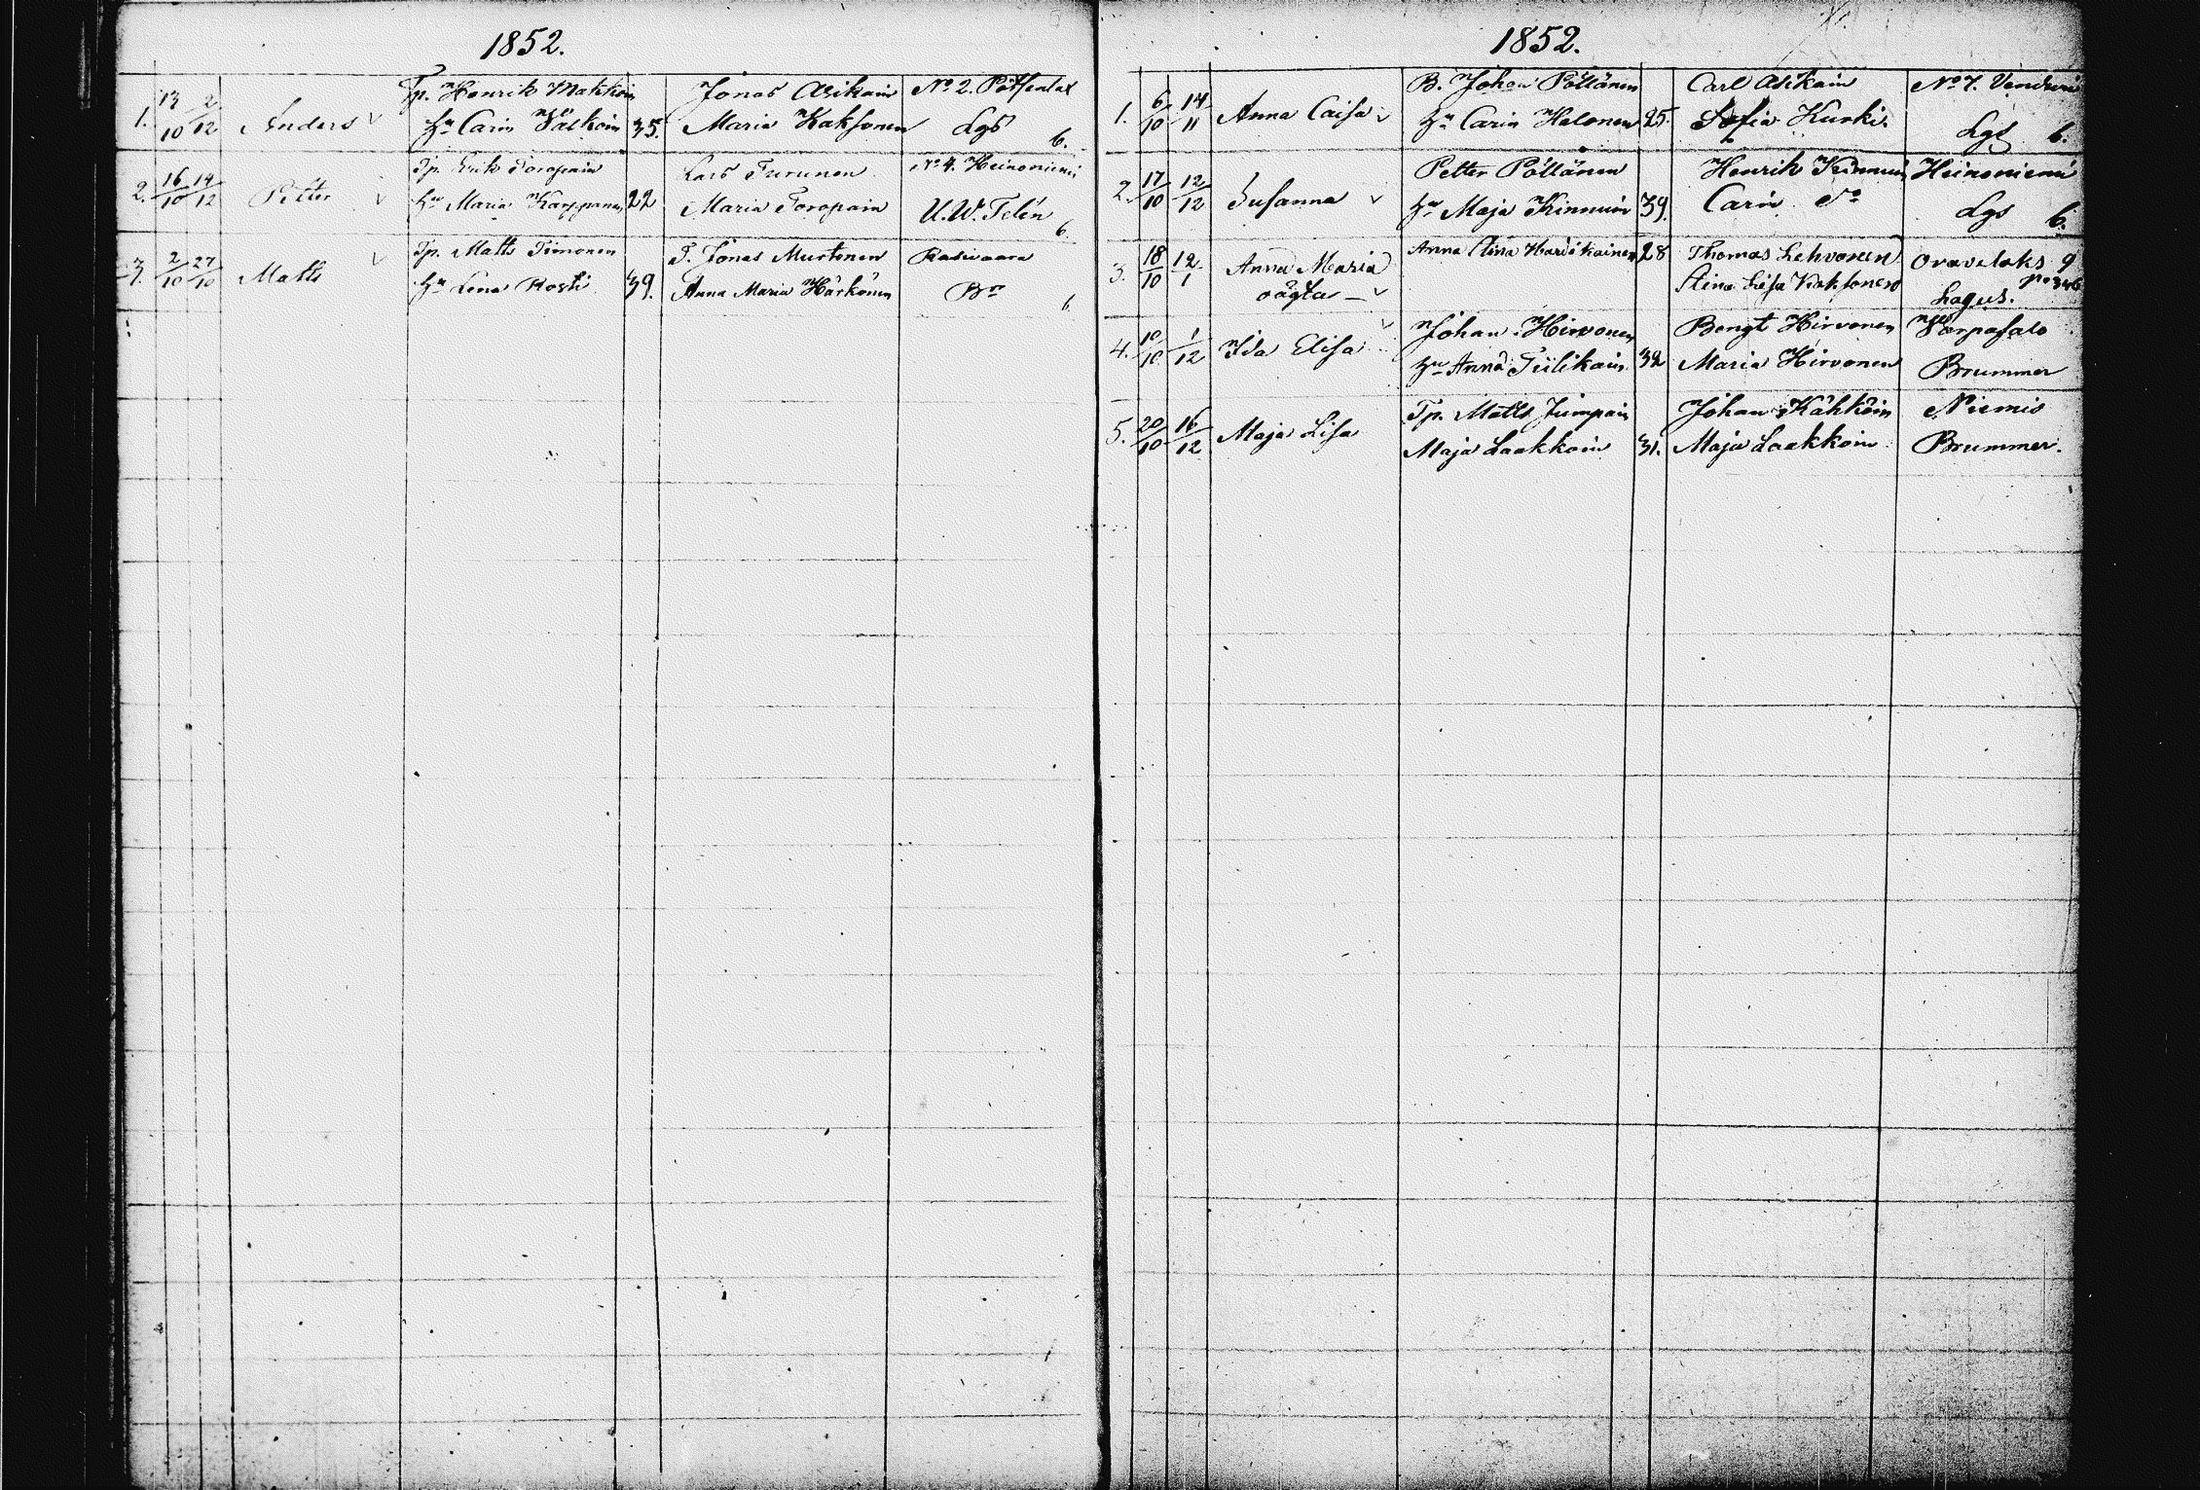 1852.
1. 13/10 2/12 Anders Tp. Henrik Makkoin Jonas Asikain No 2. Pötsenlax
Hu Carin Väskoin 35. Maria Kaksonen Lgs 6.
2. 16/10 14/12 Petter Tp. Erik Toropain Lars Turunen No 4. Heinoniemi
Hu Maria Karppanen 22 Maria Toropain U.W. Telén 6.
3. 2/10 27/10 Matts Tp. Matts Timonen T. Jonas Murtonen Rasivaara
Hu Lena Rosti 39. Anna Maria Härkönen Bn 6
1852.
1. 6/10 14/11 Anna Caisa B. Johan Pöllänen Carl Asikain No 7.
Hu Carin Halonen 25. Sofia Kurki. Lgs 6.
2. 17/10 12/12 Susanna Petter Pöllänen Henrik Kinnuin Heinoniemi
Hu Maja Kinnuin 39. Carin Do Lgs 6.
3. 18/10 12/1 Anna Maria Anna Stina Hardikainen 28 Thomas Lehvonen Oravilaks 9
oägta Stina Lisa Kaksonen Lagus.
4. 10/10 1/12 Ida Elisa Johan Hirvonen Bengt Hirvonen Varpasalo
Hu Anna Tiilikain 32 Maria Hirvonen Brummer
5. 20/10 16/12 Maja Lisa Tp. Matts Jumpain Johan Kähköin Niemis
Maja Laakkoin 31. Maja Laakkoin Brummer.